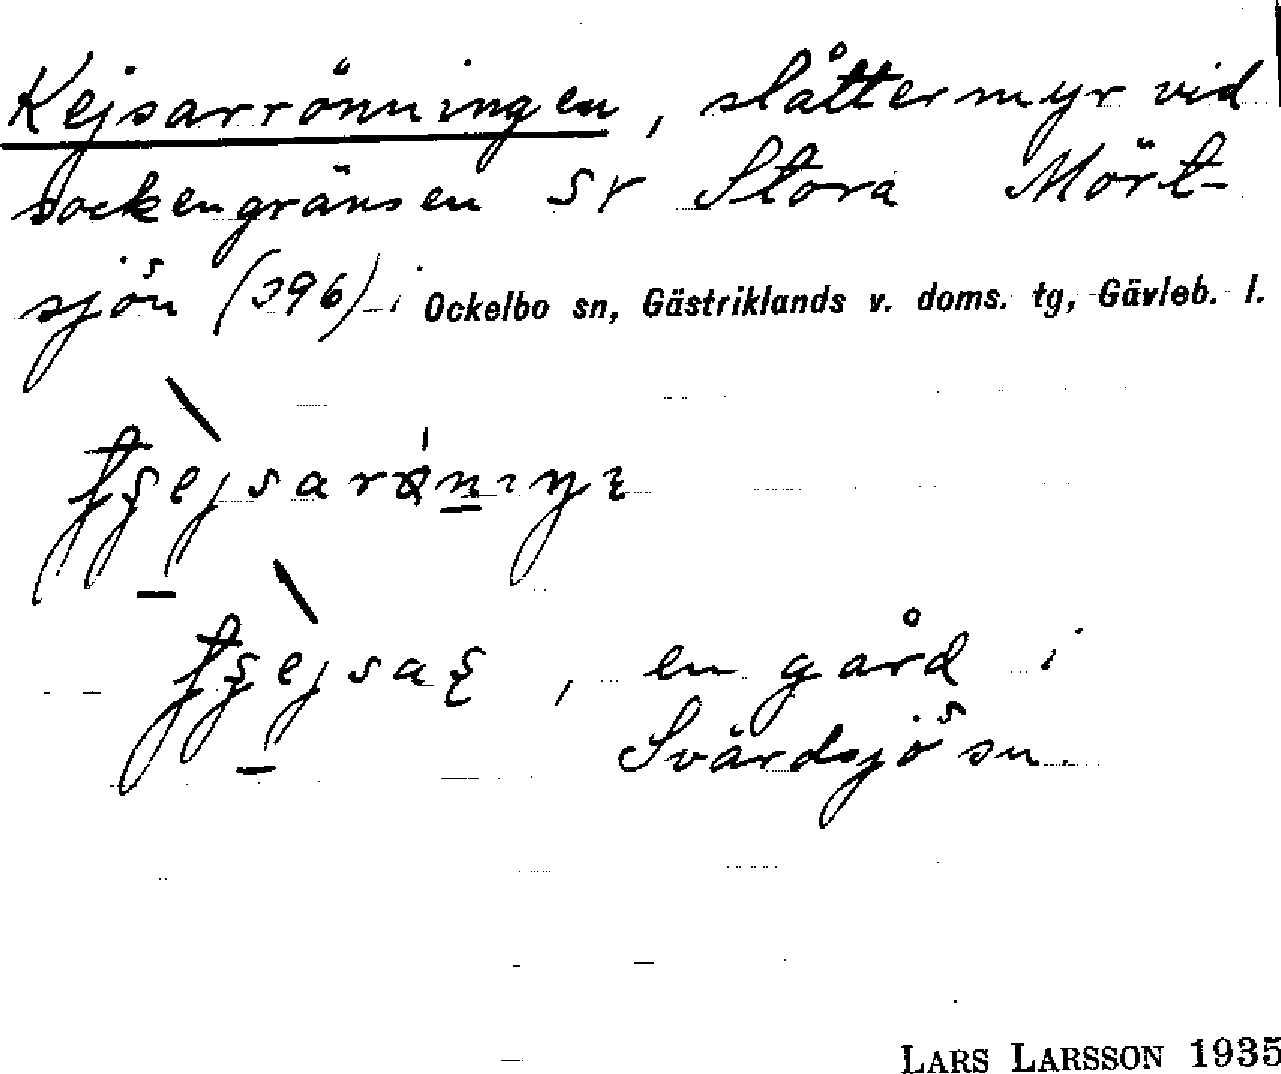 Kejsarrönningen, slåttermyr vid
sockengränsen SV Stora Mört-
sjön (396) i Ockelbo sn, Gästriklands v. doms. tg, Gävleb. l.
, en gård i
Svärdsjö sn.
LARS LARSSON 1935